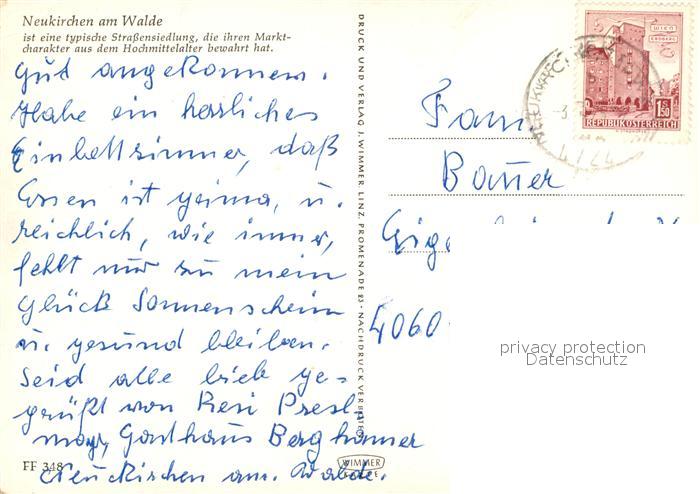 Neukirchen am Walde
ist eine typische Straßensiedlung, die ihren Markt-
charakter aus dem Hochmittelalter bewahrt hat.
Gut angekommen.
Habe ein herrliches
Einbettzimmer, daß
Essen ist prima, u.
reichlich, wie immer,
fehlt nur zu mein
Glück Sonnenschein
u. gesund bleiben.
Seid alle lieb ge-
grüßt von Resi
Gasthaus Berghamer
Neukirchen am Walde.
FF 348
WIMMER
DRUCK UND VERLAG J. WIMMER, LINZ, PROMENADE 23 • NACHDRUCK VERBOTEN
WIEN
ERDBERG
1.50
REPUBLIK ÖSTERREICH
4724
Fam.
Bauer
4060
privacy protection
Datenschutz